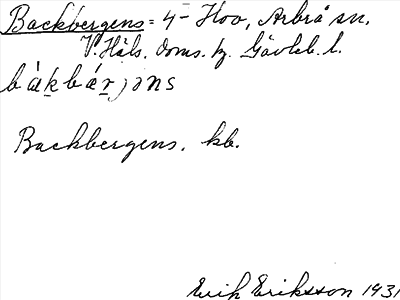 Backbergens = 4 - Hov, Arbrå sn.
V. Häls. doms. hg. Gävleb. l.
bákbár̠jəns
Backbergens, kb.
Erik Eriksson 1931